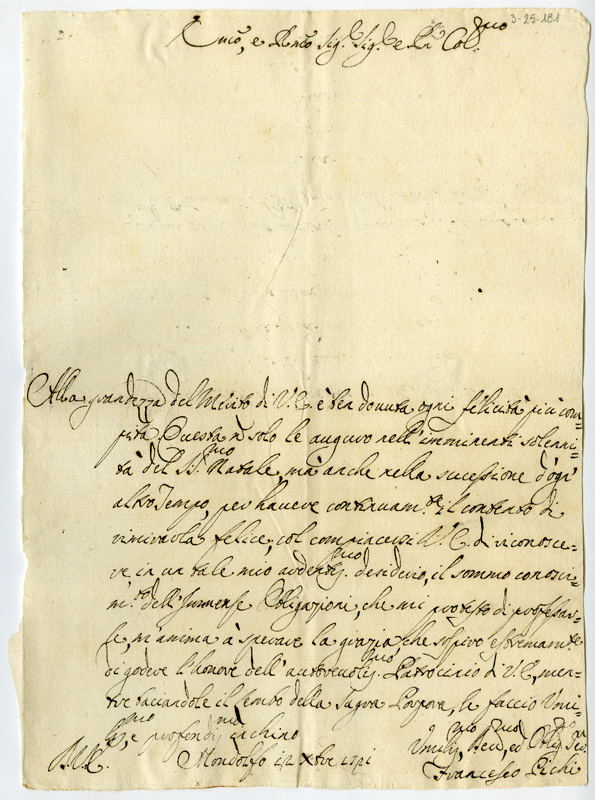 3-25-181
Em̃o, e Rmõ Sig.r Sig.r e Pñ Col.mo
Alla grandezza del Merito di V.E. è ben douuta ogni felicità più com=
pita. Questa ñ solo le auguro nell'imminenti solenni=
tà del SS.mo Natale, mà anche nella sucessione d'ogn'
altro Tempo, per hauere continuam.te il contento di
rimirarla felice; col compiacersi V.E. di riconosce=
re in un tale mio ardentis.mo desiderio, il sommo conosci=
m.to dell'Immense Obligazioni, che mi protesto di professar=
le, m'anima à sperare la grazia, che sospiro estremam.te
di godere l'honore dell'autoreuolis.mo Patrocinio di V.E, men=
tre baciandole il Lembo della Sagra Porpora, le faccio Umi=
lis.mo, e profondis.mo inchino
Mondolfo 12 Xbre 1721
Umilis.mo, Deu.mo, ed Oblig. Ser.
Francesco Pichi